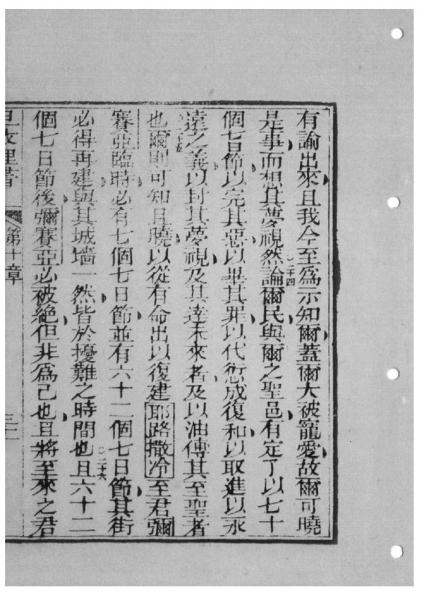 有諭出來且我今至爲示知爾蓋爾大被寵愛故爾可曉
是事而想其夢視然論爾民與爾之聖邑有定了以七十
二十四
個七日節以完其惡以畢其罪以代愆成復和以取進以永
遠之義以封其夢視及其達未來者及以油傅其至聖者
也爾則可知且曉以從有命出以復建耶路撒冷至君彌
賽亞臨時必有七個七日節並有六十二個七日節其街
必得再建與其城墻一然皆於擾難之時間也且六十二
二十六
個七日節後彌賽亞必被絕但非爲己也且將至來之君
第十章